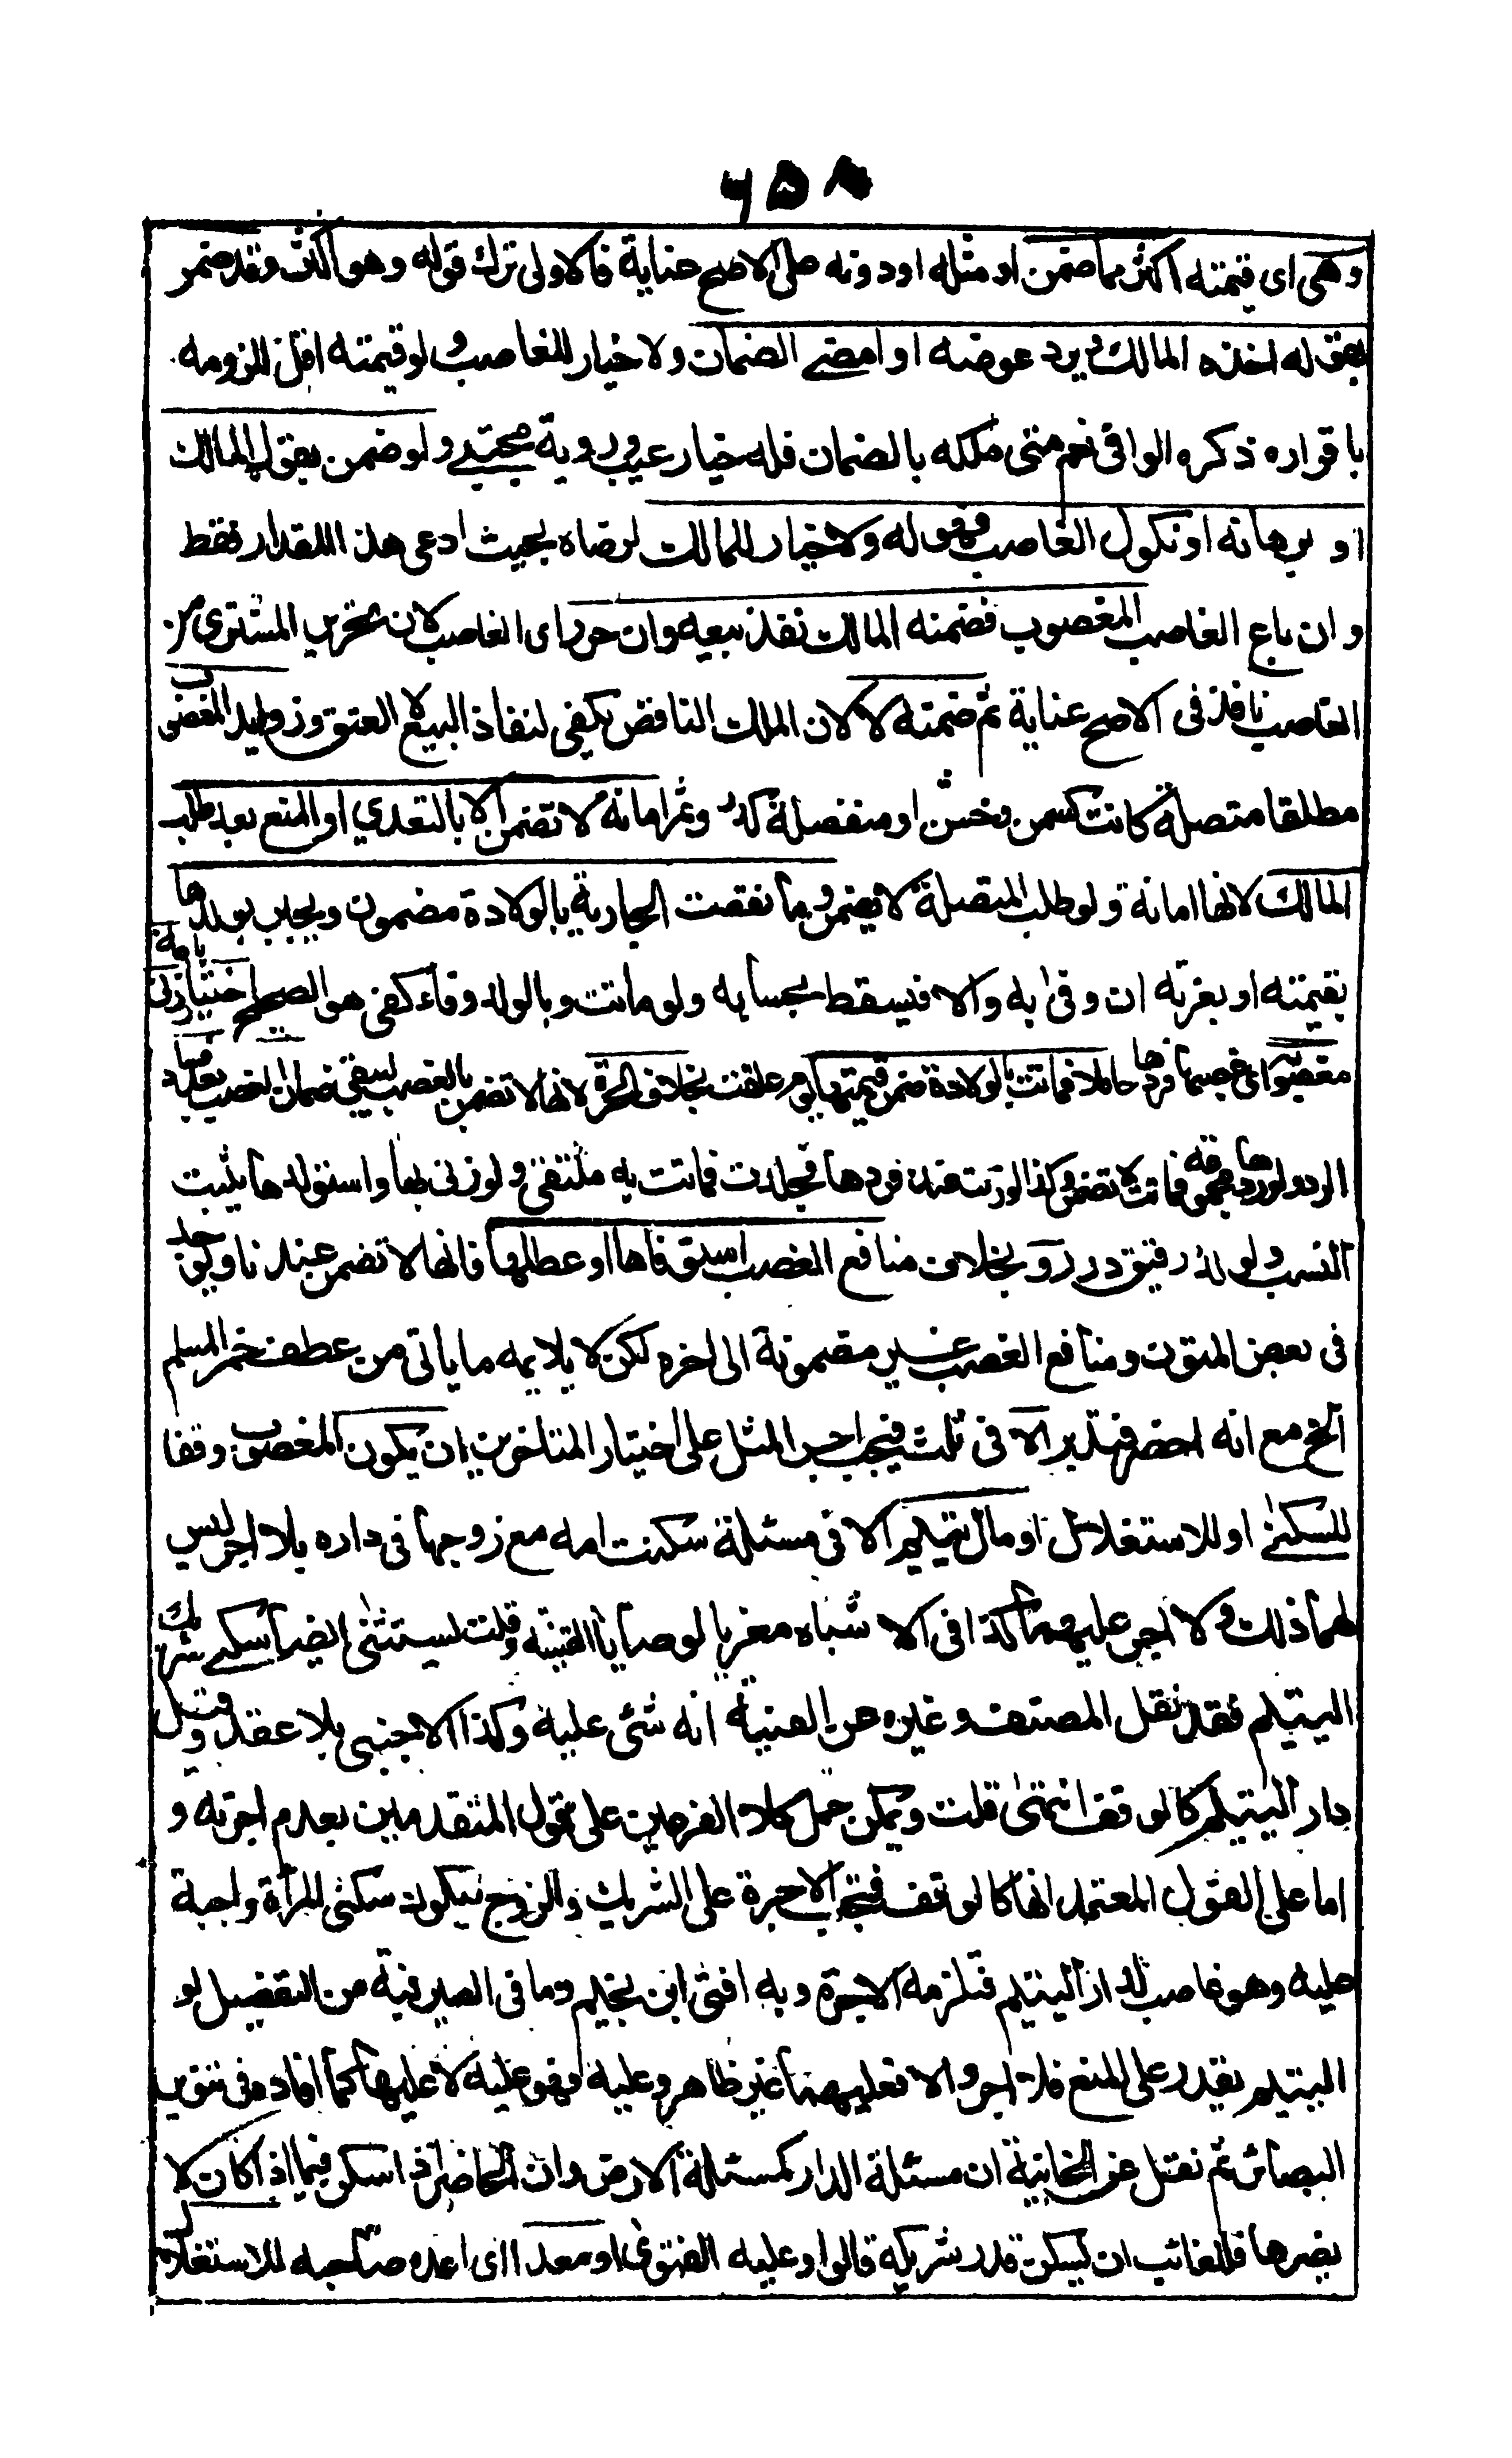 ٦٥٨
وهى اى قيمته اكثر مما ضمن او مثله او دونه على الاصح عناية فالاولى ترك قوله وهو اكثر وقد ضمن
بقوله اخذه المالك ويرد عوضه او امضى الضمان ولا خيار للغاصب ولو قيمته اقل للزومه
باقراره ذكره الوافى نعم متى ملكه بالضمان فله خيار عيب ورؤية مجتبى ولو ضمن بقول المالك
او برهانه او نكول الغاصب فهو له ولا خيار للمالك لرضاه بحيث ادعى هذا المقدار فقط
وان باع الغاصب المغصوب فضمنه المالك نفذ بيعه وان حرر اى الغاصب لان تحرير المشترى من
الغاصب نافذ فى الاصح عناية ثم ضمنه لا لان الملك الناقص يكفى لنفاذ البيع لا العتق وزوايد المغصوب
مطلقا متصلة كانت كسمن وحسن او منفصلة كدر وثمر امانة لا تضمن الا بالتعدي او المنع بعد طلب
المالك لانها امانة ولو طلب المتصلة لا يضمن وما نقصت الجارية بالولادة مضمون ويجبر بولدها
بقيمته او بغرته ان وفى به والا فيسقط بحسابه ولو ماتت وبالولد وفاء كفى هو الصحيح اختيار زنى بامة
مغصوبة اى غصبها فردها حاملا فماتت بالولادة ضمن قيمتها يوم علقت بخلاف الحرة لانها لا تضمن بالغصب ليبقى ضمان الغصب بعد فساد
الرد ولو ردها محمومة فماتت لا تضمن وكذا لو زنت عنده فردها فجلدت فماتت به ملتقى ولو زنى بها واستولدها يثبت
النسب والولد رقيق درر و بخلاف منافع الغصب استوفاها او عطلها فانها لا تضمن عندنا ويوجد
فى بعض المتون ومنافع الغصب غير مضمونة الى اخره لكن لا يلايمه ما ياتى من عطف خمر المسلم
الخ مع انه اخصر فتدبر الا فى ثلث فيجب اجر المثل على اختيار المتاخرين ان يكون المغصوب وقفا
للسكنى او للاستغلال او مال يتيم الا فى مسئلة سكنت امه مع زوجها فى داره بلا اجر ليس
لهما ذلك ولا اجر عليهما كذا فى الاشباه معزيا لوصايا القنية وقلت ليستثنى ايضا سكنى شريك
اليتيم فقد نقل المصنف وغيره عن القنية انه شئ عليه وكذا الاجنبى بلا عقد وقيل
دار اليتيم كالوقف انتهى قلت ويمكن حمل كلا الفرعين على قول المتقدمين بعدم اجرته و
اما على القول المعتمد انها كالوقف فتجب الاجرة على الشريك والزوج ليكون سكنى المرأة واجبة
عليه وهو غاصب لدار اليتيم فتلزمه الاجرة وبه افتى ابن نجيم وما فى الصيرفية من التفصيل لو
اليتيم يقدر على المنع فلا اجر والا فعليهما غير ظاهر وعليه فهو عليه لا عليها كما افاده فى تنوير
البصائر ثم نقل عن الخانية ان مسئلة الدار كمسئلة الارض وان الحاضر اذا سكن فيما اذا كان لا
يضرها فللغائب ان يسكن قدر شريكه قالوا وعليه الفتوى او معدا اى اعده صاحبه للاستغلال